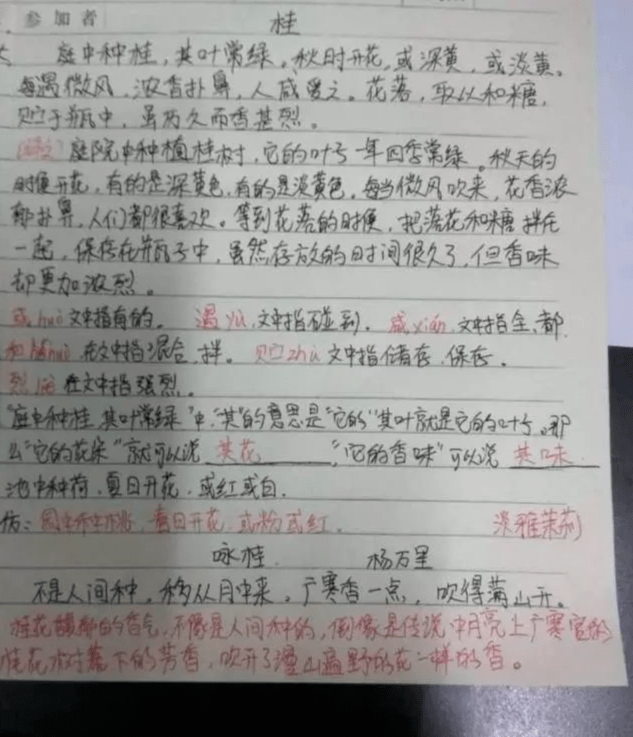 参加者
桂
庭中种桂，其叶常绿。秋时开花，或深黄，或淡黄。
每遇微风，浓香扑鼻，人咸爱之。花落，取以和糖，
贮于瓶中，虽历久而香甚烈。
庭院中种植桂树，它的叶子一年四季常绿。秋天的
时候开花，有的是深黄色，有的是淡黄色。每当微风吹来，花香浓
郁扑鼻，人们都很喜欢。等到花落的时候，把落花和糖拌在
一起，保存在瓶子中，虽然存放的时间很久了，但香味
却更加浓烈。
或huò文中指有的。 遇yù，文中指碰到。 咸xián，文中指全、都
和huò 在文中指混合，拌。 贮zhù 文中指储存，保存。
烈 在文中指强烈。
"庭中种桂，其叶常绿"中，"其"的意思是"它的"其叶就是它的叶子。那
么"它的花朵"就可以说 其花 ，"它的香味"可以说 其味
池中种荷，夏日开花，或红或白。
仿：园中种桃，春日开花，或粉或红。 淡雅茉莉
咏桂 杨万里
不是人间种，移从月中来，广寒香一点，吹得满山开。
桂花 的香气，不像是人间种的，倒像是传说中月亮上广寒宫的
桂花树 下的芳香，吹开了漫山遍野的花一样的香。